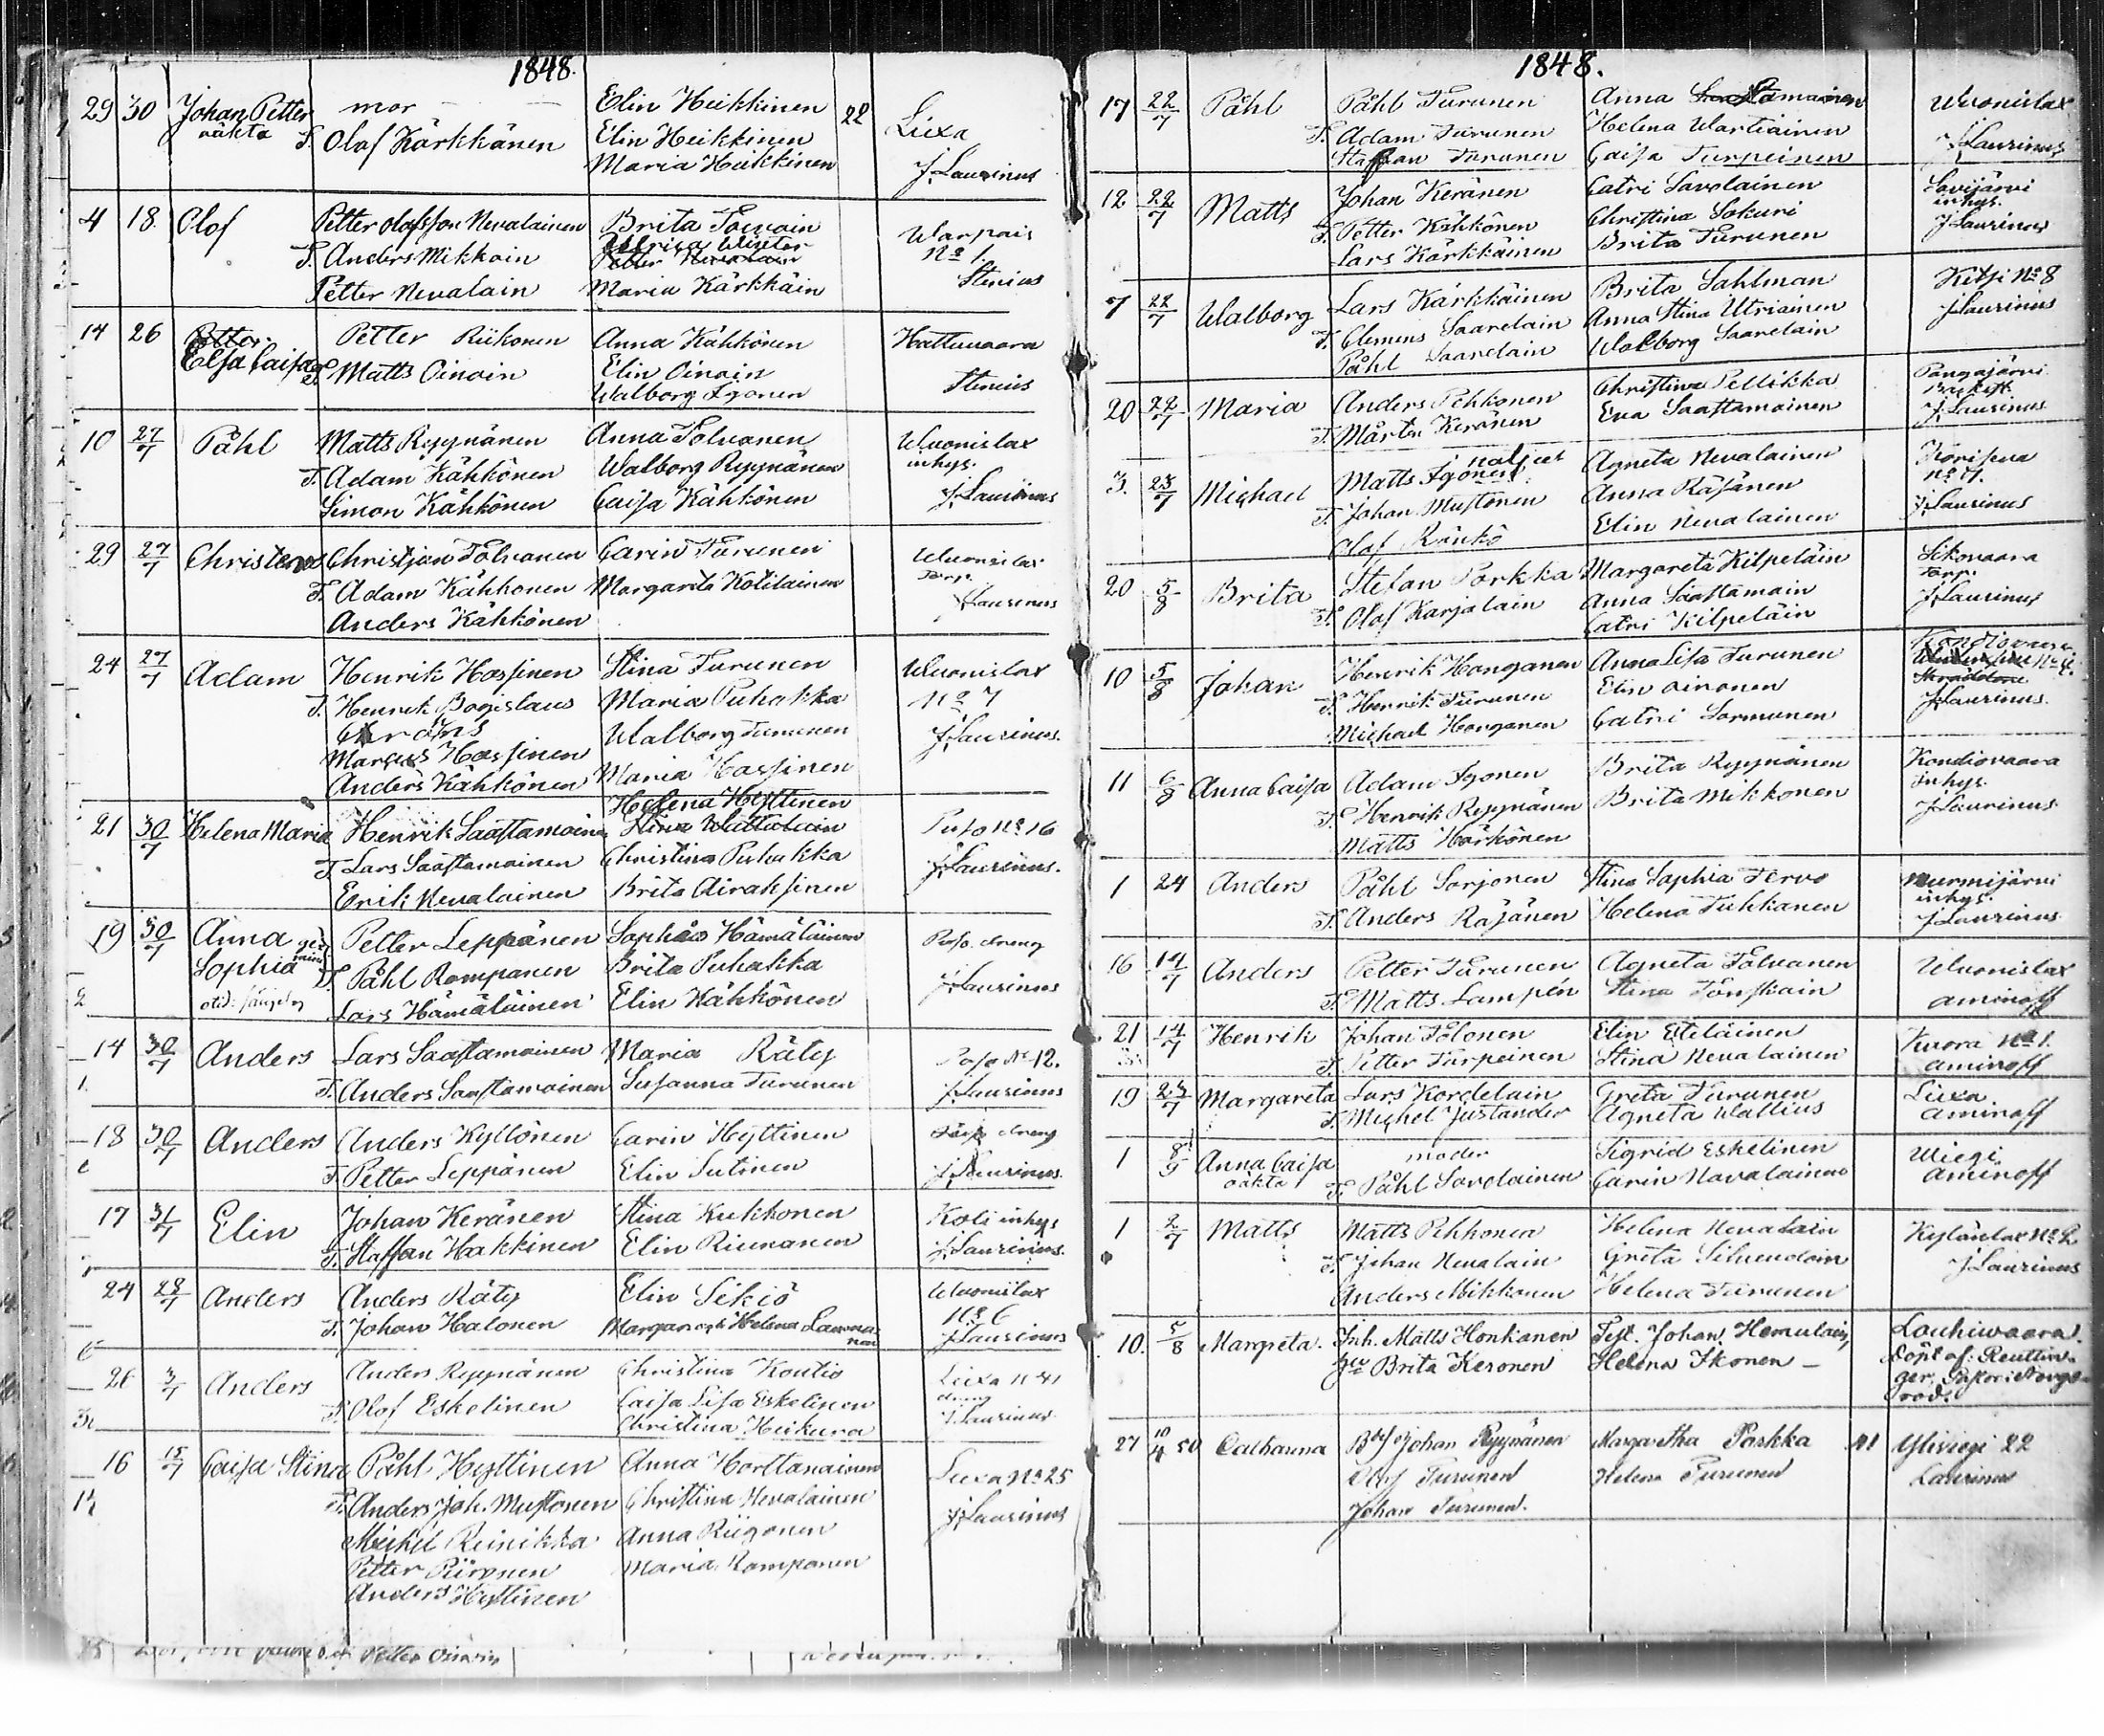 1848.
29 30 Johan Petter mor — — Elin Heikkinen 22 Lixa
oäkta T. Olof Kärkkänen Elin Heikkinen
Maria Heikkinen J. Laurinus
4 18. Olof Petter Olofsson Nevalainen Brita Toivain Warpais
T. Anders Mikkoin Ulrica Winter No 1.
Petter Nevalain Maria Kärkkäin Stenius
14 26 Petter Petter Riikonen Anna Kähkönen Hattuvaara
Elsa Caisa T. Matts Oinoin Elin Oinoin Stenius
Walborg Igonen
10 27/7 Påhl Matts Ryynänen Anna Tolvanen Wuonislax
T. Adam Kähkönen Walborg Ryynänen inhys.
Simon Kähkönen Caisa Kähkönen J. Laurinus
29 27/7 Christjan Tolvanen Carin Turunen Wuonislax
T. Adam Kähkonen Margareta Kotilainen torp.
Anders Kähkönen J. Laurinus
24 27/7 Adam Henrik Hassinen Stina Turunen Wuonislax
T. Henrik Bogislaus Maria Puhakka No 7
Walborg Turunen J. Laurinus.
Marcus Hassinen
Anders Kähkönen Maria Hassinen
Helena Hyttinen
21 30/7 Helena Maria Henrik Saastamoinen Puso No 16
T. Lars Saastamoinen Christina Puhakka J. Laurinus.
Erik Nevalainen Brita Airaksinen
19 30/7 Anna Petter Leppänen Sophia Hämäläinen Puso dreng
Sophia T. Påhl Rompanen Brita Puhakka
Lars Hämäläinen Elin Kähkönen J. Laurinus
14 30/7 Anders Lars Saastamoinen Maria Räty Poso No 12.
T. Anders Saastamoinen Susanna Turunen J. Laurinus
18 30/7 Anders Anders Kyllönen Carin Hyttinen dreng
T. Petter Leppänen Elin Sutinen J. Laurinus.
17 31/7 Elin Johan Keränen Stina Kukkonen Koli inhys
T. Staffan Hakkinen Elin Riunanen J. Laurinus.
24 28/7 Anders Anders Räty Elin Sikiö Wuonislax
T. Johan Halonen Margar och Helena No 6
J. Laurinus
26 3/7 Anders Anders Ryynänen Christina Koutio Lixa N 41
T. Olof Eskelinen Caisa Lisa Eskelinen dreng
Christina Heikura J. Laurinus
16 15/7 Caisa Stina Påhl Hyttinen Anna Horttanainen Lixa No 25
T. Anders Joh. Mustonen Christina Nevalainen
Michel Reinikka Anna Riigonen J. Laurinus
Petter Piironen Maria Romponen
Anders Hyttinen
Petter Oinoin
1848.
17 22/7 Påhl Påhl Turunen Anna Wuonislax
T. Adam Turunen Helena Wartiainen
Staffan Turunen Caisa Turpeinen J. Laurinus
12 22/7 Matts Johan Keränen Catri Savolainen Savijärvi
T. Petter Kähkönen Christina Sokuri inhys.
Lars Kärkkäinen Brita Turunen J. Laurinus
7 22/7 Walborg Lars Kärkkäinen Brita Sahlman Kitsi No 8
T. Clemens Saarelain Anna Stina Utriainen J. Laurinus
Påhl Saarelain Walborg Saarelain
20 22/7 Maria Anders Pehkonen Christina Pellikka Pangajärvi
T. Mårten Keränen Eva Saastamoinen J. Laurinus
3. 23/7 Michael Matts Igonen Agneta Nevalainen Koripua
T. Johan Mustonen Anna Räsänen No 7.
Olof Ränkö Elin Nevalainen J. Laurinus
20 5/8 Brita Stefan Porkka Margareta Kilpeläin Sikovaara
T. Olof Karjalain Anna Saastamain torp.
Catri Kilpeläin J. Laurinus
10 5/8 Johan Henrik Honganen Anna Lisa Turunen Kondiovaara
T. Henrik Turunen Elin Oinonen
Michael Honganen Catri Sormunen J. Laurinus.
11 6/8 Anna Caisa Adam Igonen Brita Ryynänen Kondiovaara
T. Henrik Ryynänen Brita Mikkonen inhys.
Matts Härkönen J. Laurinus
1 24 Anders Påhl Sorjonen Stina Sophia Tervo Nurmijärvi
T. Anders Räsänen Helena Tukkanen inhys.
J. Laurinus
16 14/7 Anders Petter Turunen Agneta Tolvanen Wuonislax
T. Matts Lampén Stina Aminoff
21 14/7 Henrik Johan Tolonen Elin Eteläinen Kuora No 1.
T. Petter Turpeinen Stina Nevalainen Aminoff
19 23/7 Margareta Lars Kordelain Greta Turunen Lixa
T. Michel Justander Agneta Wallius Aminoff
1 8/9 Anna Caisa moder Sigrid Eskelinen Wiegi
oäkta T. Påhl Savolainen Carin Navalainen Aminoff
1 2/7 Matts Matts Pehkonen Helena Nevalain Kylänlax No 2
T. Johan Nevalain Greta Silvendoin J. Laurinus
Anders Mikkonen Helena Turunen
10. 5/8 Margreta. Inh. Matts Honkanen Test. Johan Hemulain, Louhiwaara.
Brita Keronen Helena Ikonen — Döpt af
27 10/4 50 Catharina Johan Ryynänen Margaretha Porkka 41 Yliviegi 22
Olof Turunen Helena Turunen Laurinus
Johan Turunen.